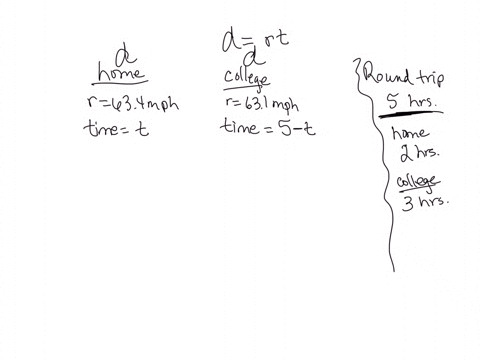 d = rt
d
home
r = 63.4 mph
time = t
d
college
r = 63.1 mph
time = 5 - t
Round trip
5 hrs.
home
2 hrs.
college
3 hrs.